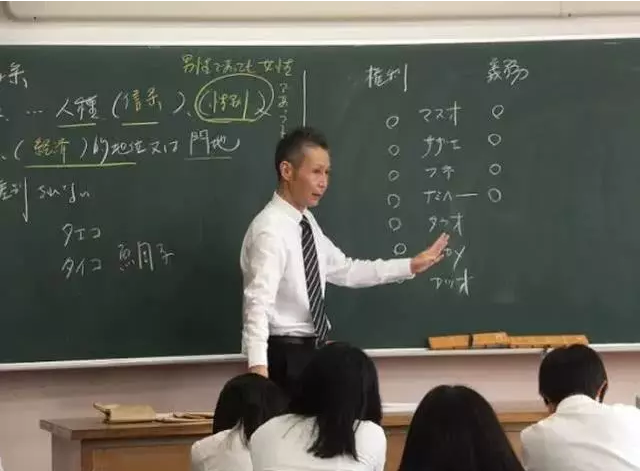 男性であっても女性
であっても
… 人種（信条）、（性別）
、（経済）的地位又は 門地
差別 されない
タエコ
タイコ
権利 義務
○ マスオ ○
○ サザエ ○
○ フネ ○
○ ナミヘー ○
○ タラオ
○
カツオ